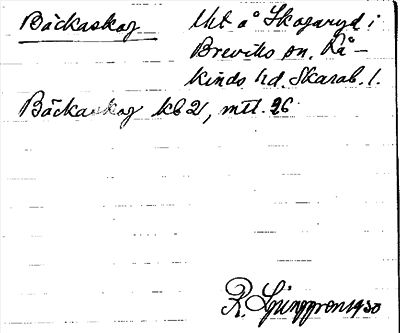 Bäckaskog Ut å Skogaryd i
Breviks sn. Kå-
kinds hd. Skarab. l.
Bäckaskog kb 2, mtl. 26
R. Ljunggren 1930